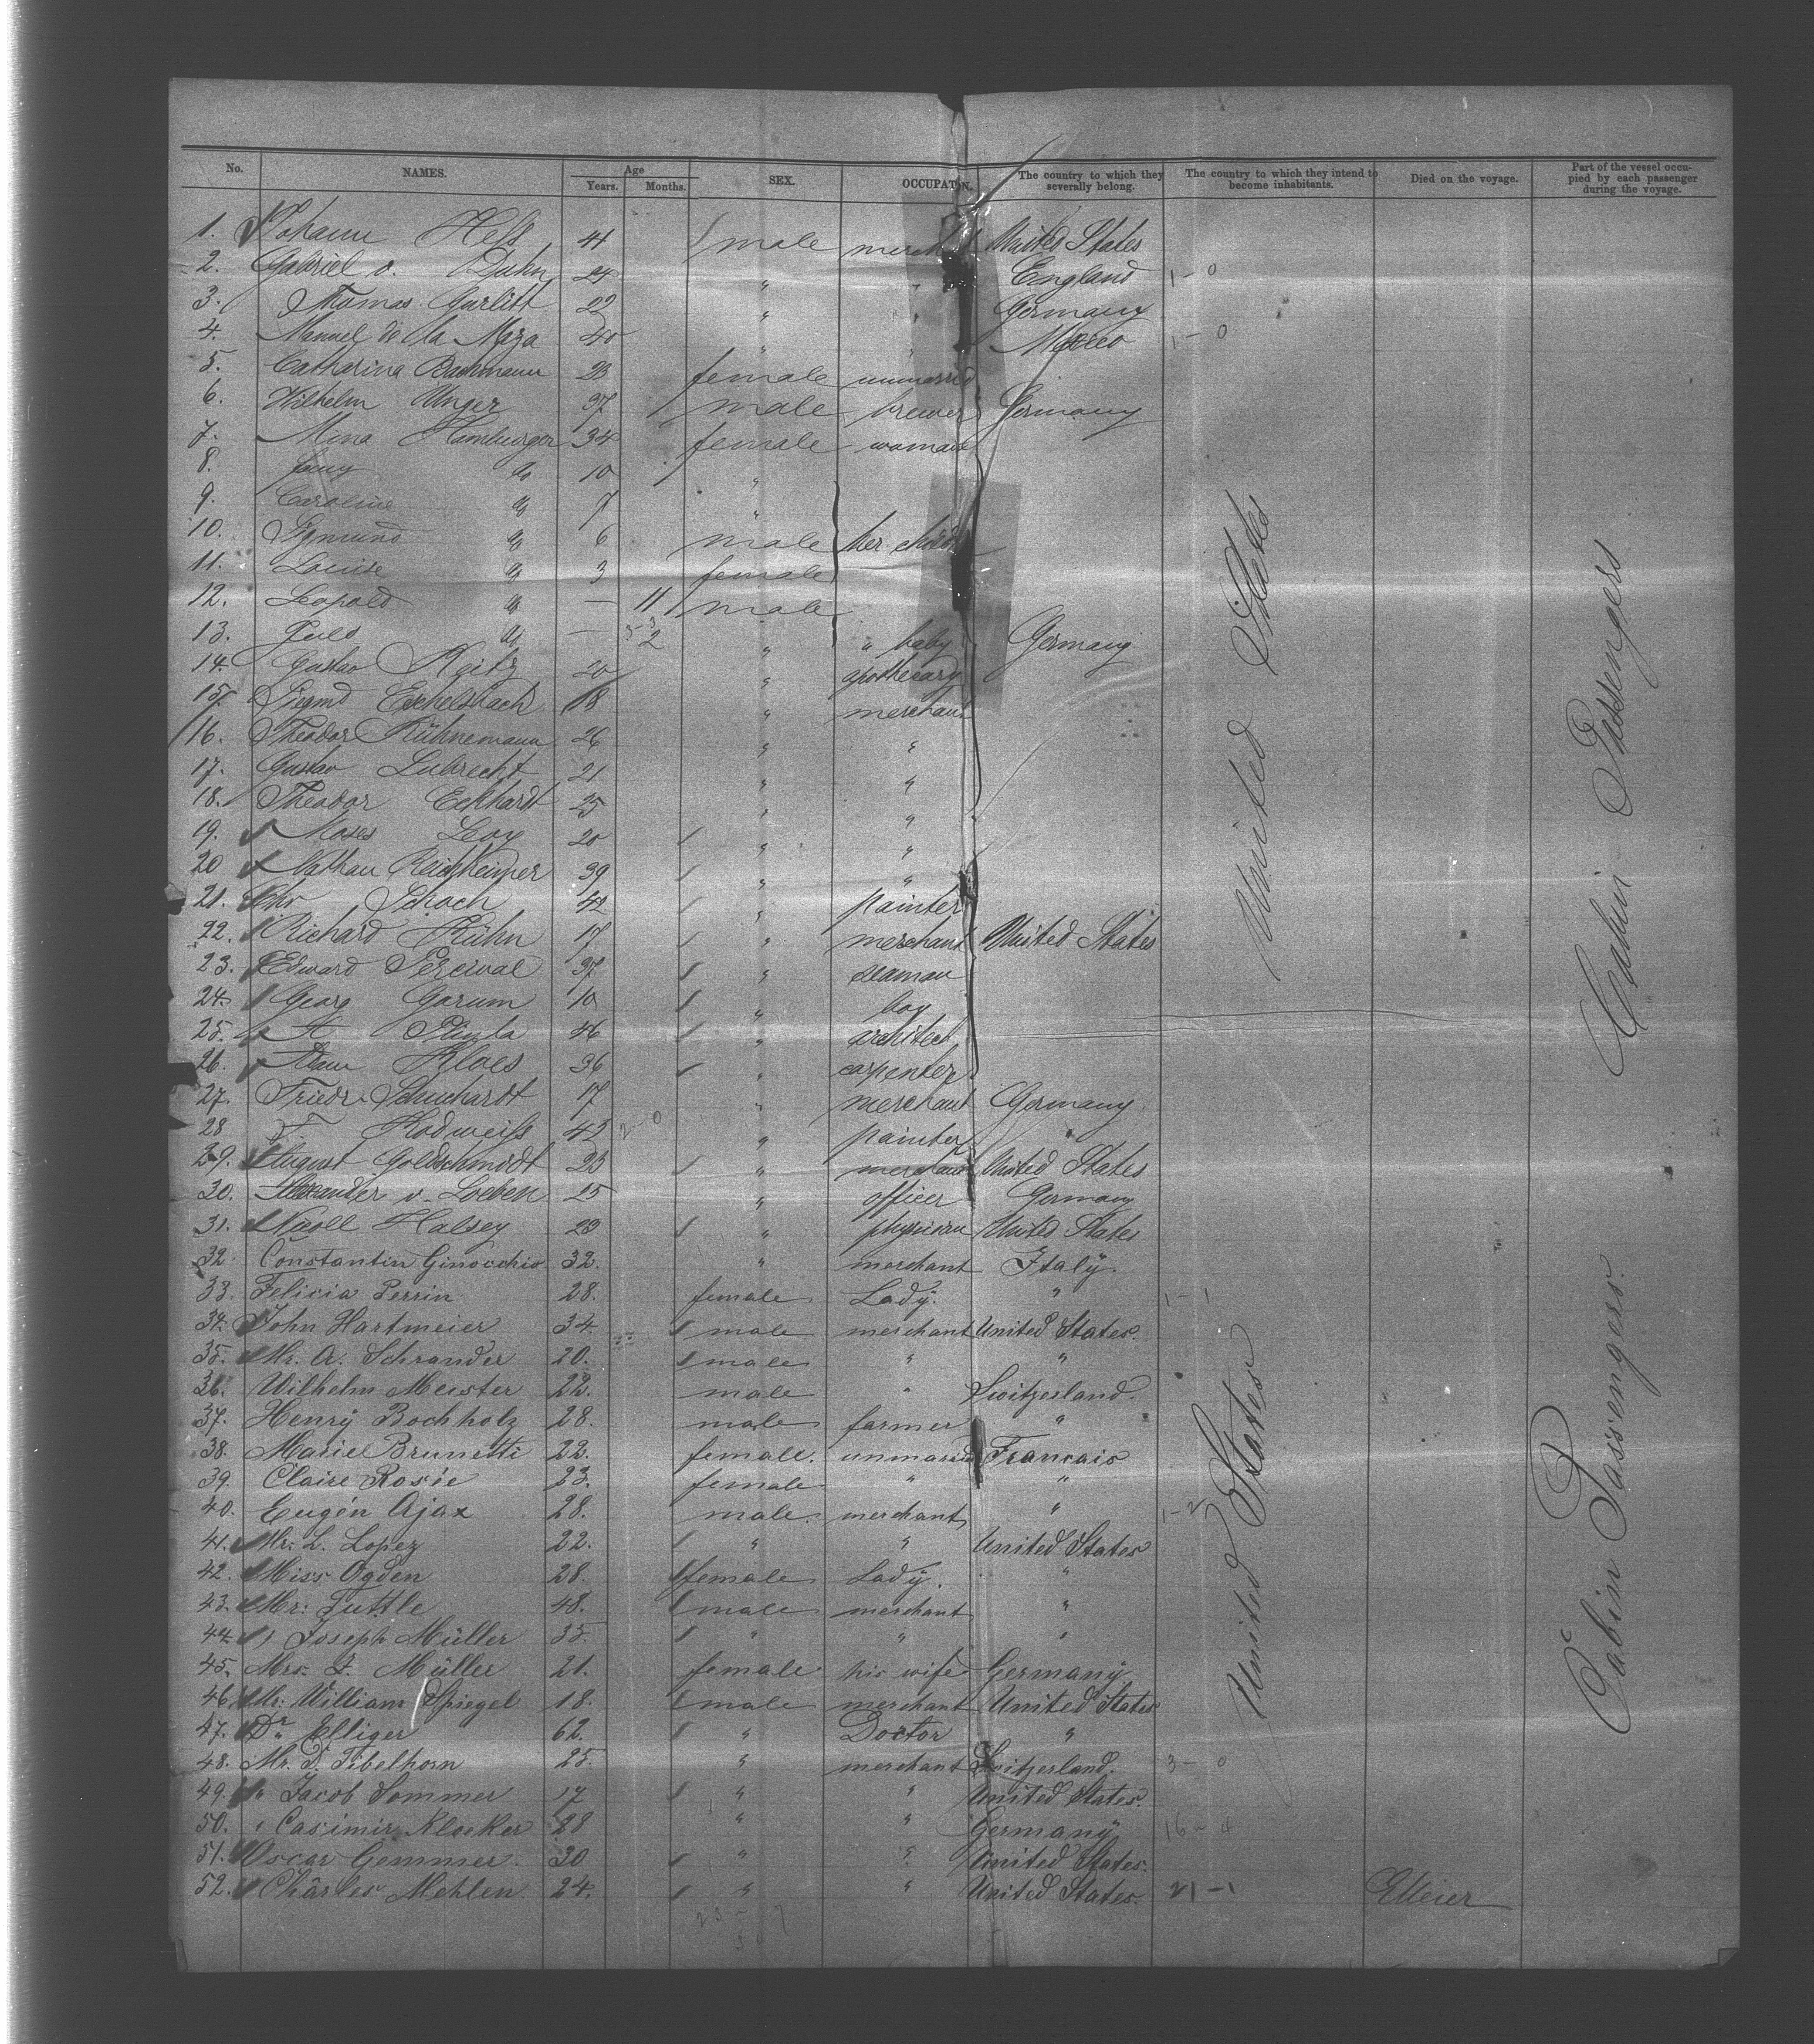 No. NAMES. Age Years. Months. SEX. OCCUPATION. The country to which they severally belong. The country to which they intend to become inhabitants. Died on the voyage. Part of the vessel occupied by each passenger during the voyage.
1. Johann Hess 41 male merchant United States
2. Gabriel v. Duhn 24 " " England 1-0
3. Thomas Gurlitt 22 " " Germany
4. Manuel de la Maza 40 " " Mexico 1-0
5. Catharina Bachmann 23 female unmarried
6. Wilhelm Unger 37 male brewer Germany
7. Mina Hamburger 34 female woman
8. Fany do 10 "
9. Caroline do 7 "
10. Sigmund do 6 male her children
11. Louise do 3 female
12. Leopold do — 11 male
13. do — 2 " " baby Germany
14. Gustav Reitz 20 " apothecary
15. Siegmd Eschelsbach 18 " merchant
16. Theodor Kühnemann 26 " "
17. Gustav Lubrecht 21 " "
18. Theodor Eckhardt 25 " "
19. Moses Levy 20 " "
20 Nathan Reichheimer 39 " "
21. Chr Schoch 42 " painter
22. Richard Kühn 17 " merchant United States
23. Edward Percival 37 " seaman
24. Georg Garum 10 " boy
25. A 46 " architect
26. Adam Kloes 36 " carpenter
27. Friedr. Schuchardt 17 " merchant Germany
28 F Rodweiss 42 2-0 " painter
29. August Goldschmidt 23 " merchant United States
30. Alexander v. Loeben 25 " officer Germany
31. Nicoll Halsey 23 " physician United States
32 Constantin Ginocchio 32. " merchant Italy.
33. Felicia Perrin 28. female Lady. " 1-1
34. John Hartmeier 34. male merchant United States.
35. Mr. A. Schrander 20. male " "
36. Wilhelm Meister 22. male " Switzerland.
37. Henry Bochholz 28. male farmer "
38. Mariee Brunetti 22. female. unmaried Francais
39. Claire Rosée 23. female " "
40. Eugén Ajax 28. male. merchant " 1-2
41. Mr. L. Lopez 22. " " United States
42. Miss Ogden 28. female Lady. "
43. Mr: Tuttle 48. male merchant "
44. " Joseph Müller 35. " " "
45. Mrs. J. Müller 21. female his wife Germany
46 Mr: William Spiegel 18. male merchant United States
47. Dr. Elliger 62. " Doctor "
48. Mr. D. Tibelhorn 25. " merchant Switzerland. 3-0
49. " Jacob Sommer 17 " " United States.
50. " Casimir Kloeker 28 " " Germany 16-4
51. Oscar Gemmer. 30 " " United States.
52. Charles Mehlen 24. " " United States. 21-1 EMeier
United States
Cabin Passengers
United States
Cabin Passengers.